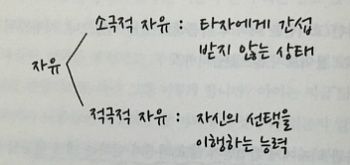 소극적 자유 : 타자에게 간섭
받지 않는 상태
자유
적극적 자유 : 자신의 선택을
이행하는 능력